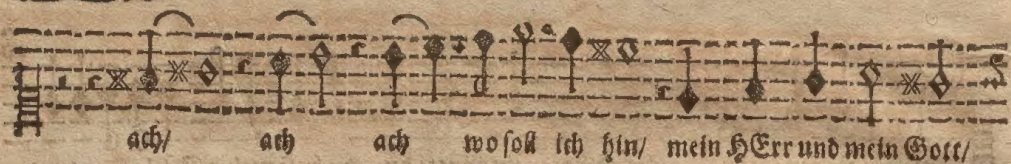 ach/ ach ach wo soll ich hin/ mein HErr und mein Gott/